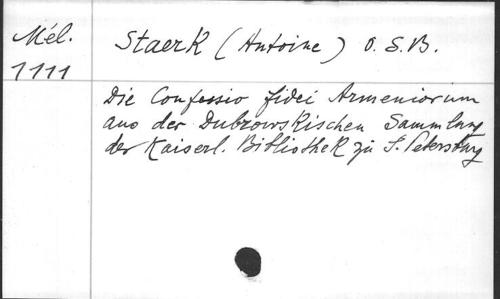 Mél.
1111
Staerk (Antoine) O.S.B.
Die Confessio fidei Armeniorum
aus der Dubrowskischen Sammlung
der Kaiserl. Bibliothek zu S. Petersburg